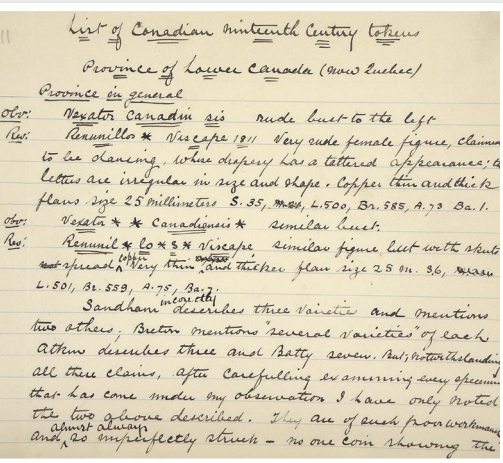 11
List of Canadian Nineteenth Century tokens
Province of Lower Canada (now Quebec)
Province in general
Obv: Vexator Canadin sis rude bust to the left
Rev: Renunillos * Viscape 1811 Very rude female figure, claimed
to be dancing, whose drapery has a tattered appearance;
letters are irregular in size and shape. Copper thin and thick
flans size 25 millimeters S. 35, L. 500, Br. 558, A. 73 Ba. 1.
Obv: Vexator * * Canadiensis * similar bust.
Rev: Renunil * lo * s * Viscape similar figure but with skirts
not spread copper Very thin and thicker flan size 25 m. 36,
L. 501, Br. 559, A. 75, Ba. 7.
Sandham incorrectly describes three varietie and mentions
two others; Breton mentions "several varieties" of each
Atkin describes three and Batty seven. But, notwithstanding
all these claims, after carefulling examining every specimen
that has come under my observation I have only noted
the two above described. They are of such poor workmans
almost always
and so imperfectly struck – no one coin showing the